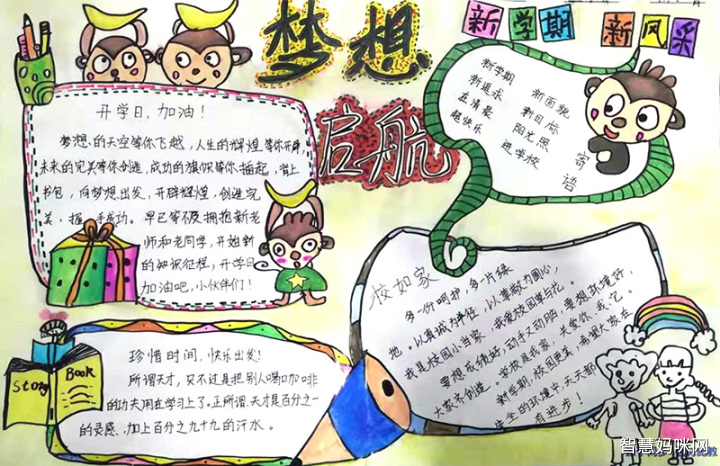 梦想
启航
新学期
新风采
开学日,加油!
梦想的天空等你飞越,人生的辉煌等你开辟,
未来的完美等你创造,成功的旗帜等你插起,背上
书包,向梦想出发,开辟辉煌,创造完
美,握手成功。早已等不及拥抱新老
师和老同学,开始新
的知识征程,开学日
加油吧,小伙伴们!
新学期 新面貌
新追求 新目标
在清晨 阳光照
趁快乐 进学校
寄语
校如家
多一份呵护,多一片绿
地。以真诚为半径,小以尊敬为圆心,
我是校园小当家,我爱校园草与花。
要想成绩好,动手又动脑,要想环境好,
大家来创造。学校是我家,关爱你我它。
新学期,校园更美,希望大家在
安全的环境中,天天都
有进步!
Story Book
珍惜时间,快乐出发!
所谓天才,只不过是把别人喝咖啡
的功夫用在学习上了。正所谓,天才是百分之一
的灵感,加上百分之九十九的汗水。
智慧妈咪网